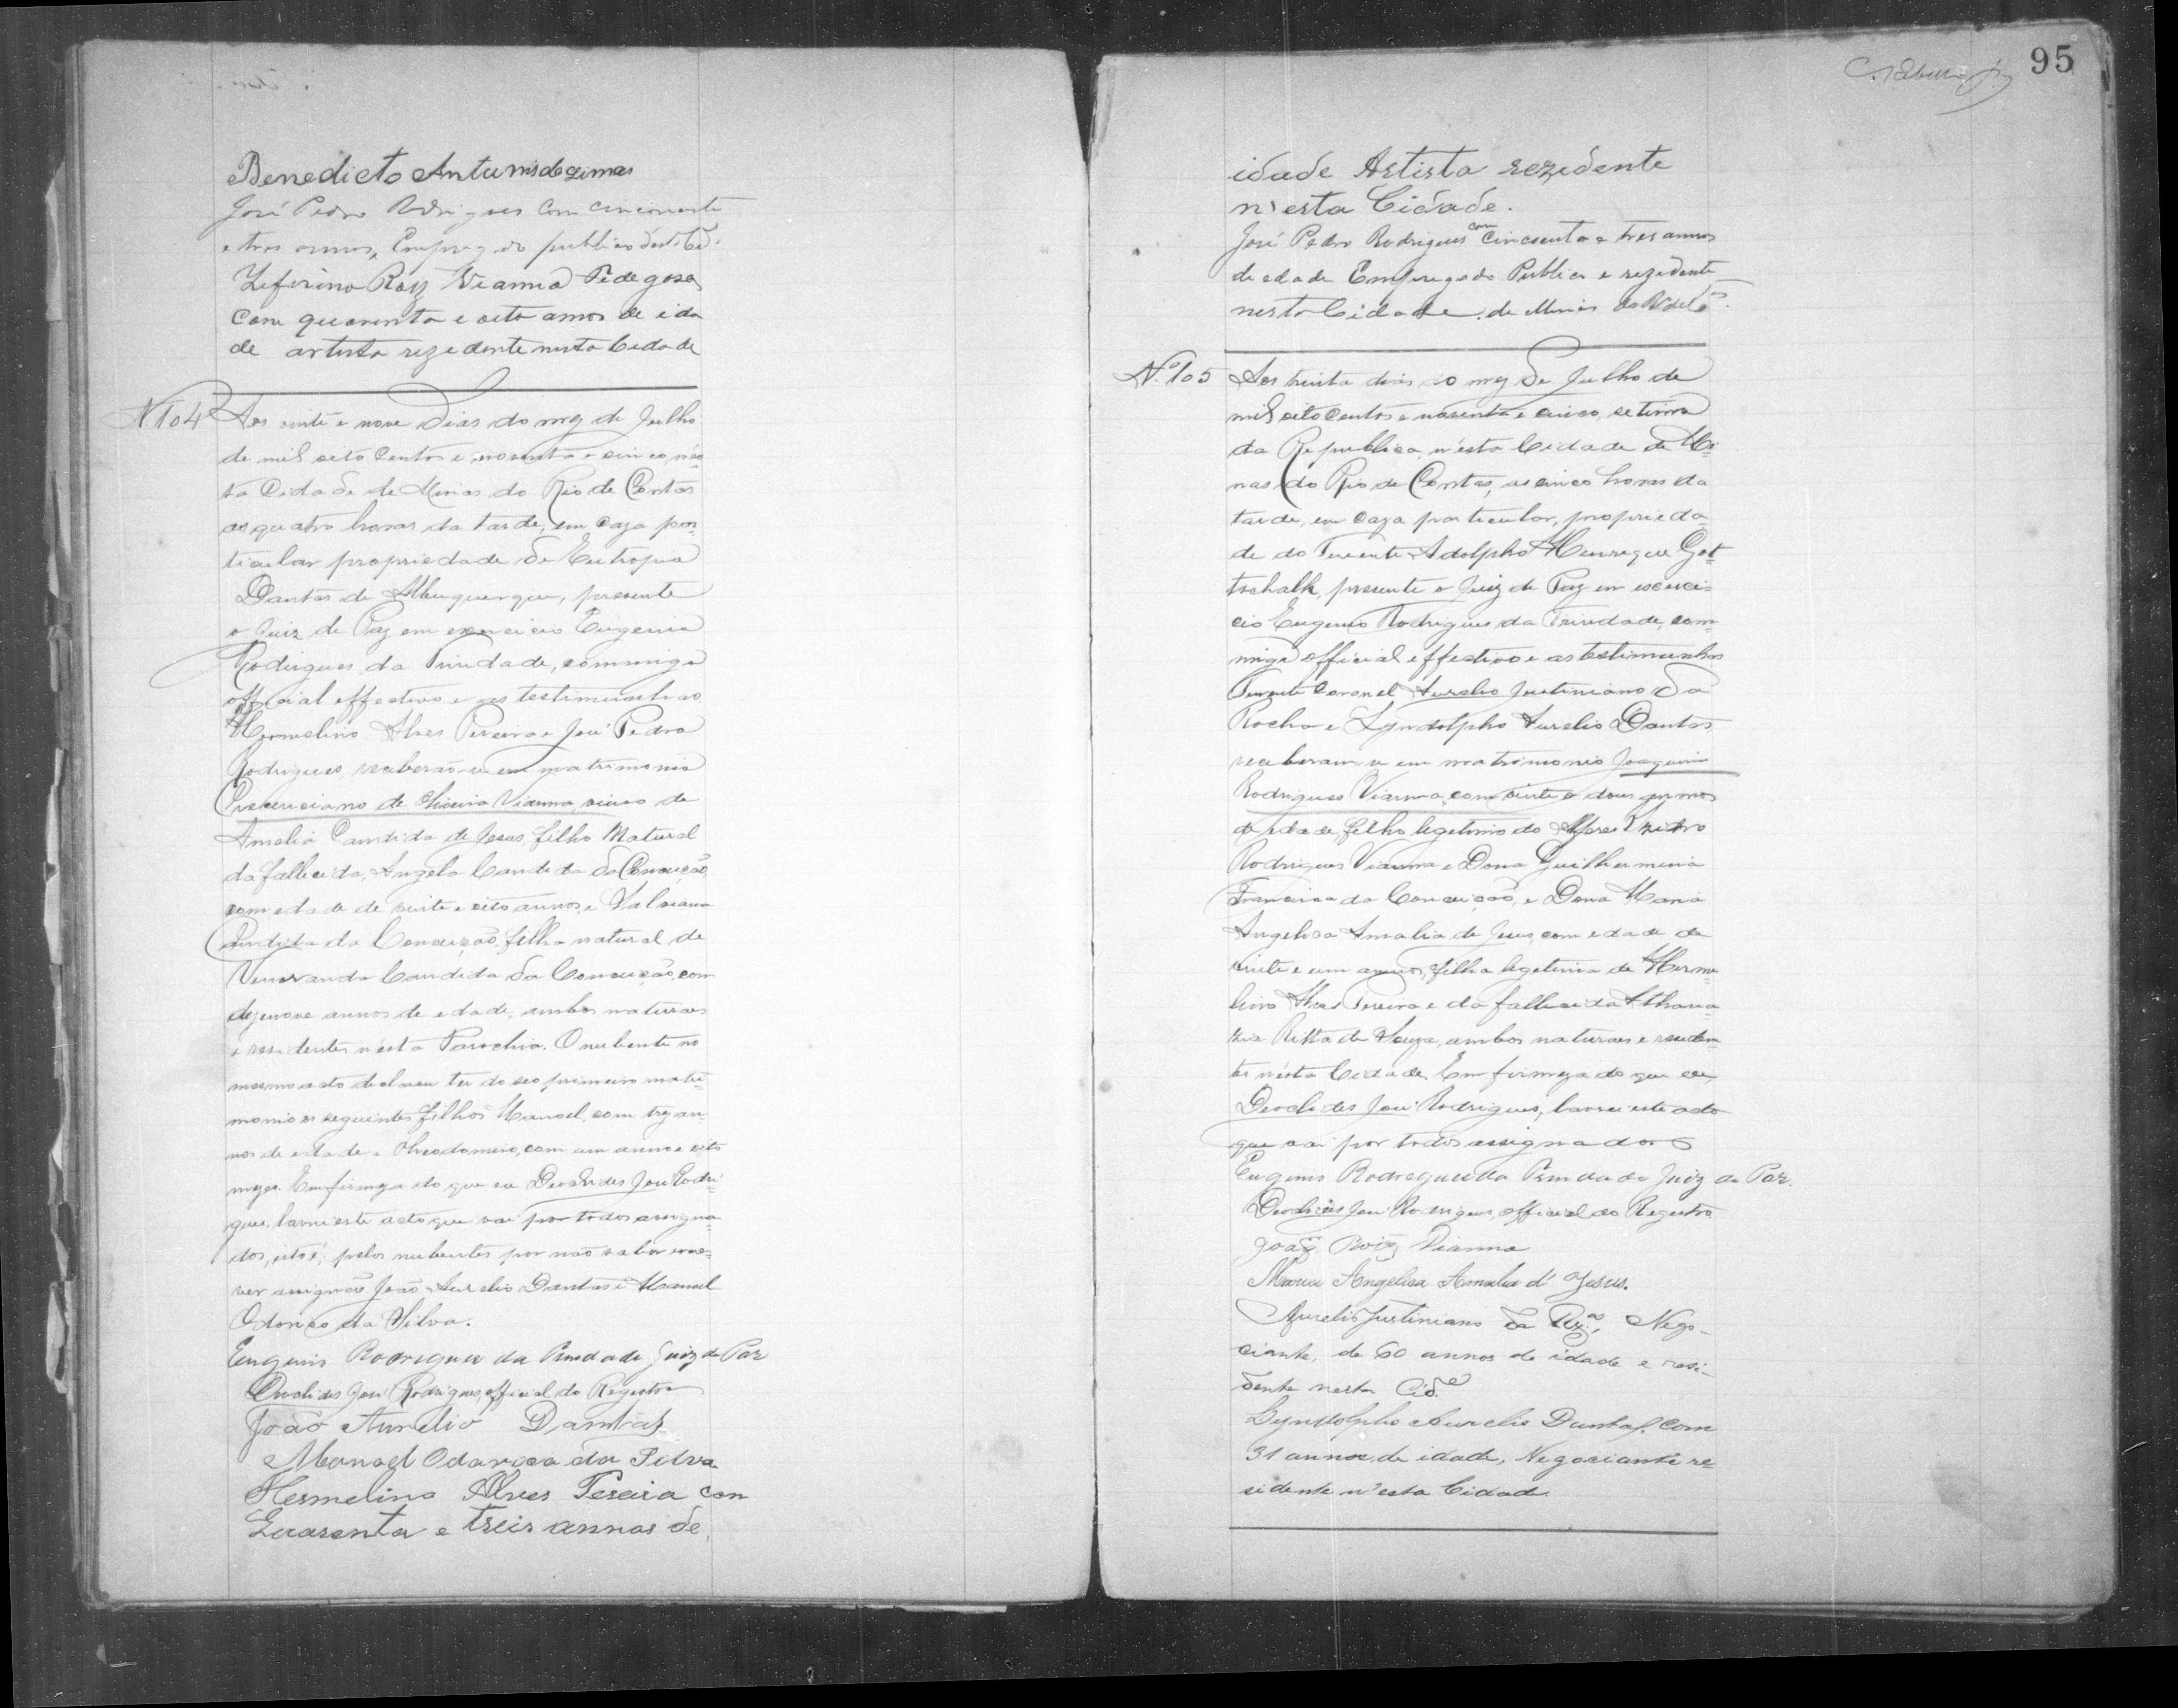 Benedicto Antunis de Limas
José Pedro Rodrigues com cincoenta
e tres annos, Empregado publico desta Cid.e
Zeferino Roiz Vianna Pedegosa
com quarenta e oito annos de ida
de artista rezidente nesta Cidade
N 104 Aos vinte e nove dias do mez de Julho
de mil oito centos e noventa e cinco, nés-
ta Cidade de Minas do Rio de Contas
as quatro horas da tarde, em caza par-
ticular propriedade de Eutropia
Dantas de Albuquerque, presente
o Juiz de Paz em exercicio Eugenio
Rodrigues da Trindade, commigo
official effectivo e as testimunhas
Hermelino Alves Pereira e José Pedro
Rodrigues, receberão-se em matrimonio
de Oliveira Vianna, viuvo de
Amelia Candida de Jesus, filho Natural
da fallecida, Angela Candida da Conceição
com edade de vinte e oito annos, e
da Conceição, filha natural de
Veneranda Candida da Conceição, com
dezenove annos de edade, ambos naturaes
e residentes n'esta Parochia. O nubente no
mesmo acto declarou ter do seo primeiro matri-
monio os seguintes filhos Manoel, com trez an-
nos de edade e Theodomiro, com um anno e oito
mezes. Em firmeza do que eu Deoclides José Rodri-
gues, lavrei este acto que vai por todos assigna-
dos, isto é; pelos nubentes, por não saber escre-
ver assignão João Aurelio Dantas e Manoel
Odorico da Silva.
Eugenio Rodrigues da Trindade Juiz de Paz
Deoclides José Rodrigues, official do Registro
João Aurelio Dantas
Manoel Odorico da Silva
Hermelino Alves Pereira con
Quarenta e treis annos de
95
idade Artista rezidente
n'esta Cidade.
José Pedro Rodrigues com cincoenta e tres annos
de edade Empregado Publico e rezidente
nesta Cidade de Minas do R. de C.tas
N.º 105 Aos trinta dias do mez de Julho de
mil oito centos e noventa e cinco, setimo
da Republica, n'esta Cidade de Mi-
nas do Rio de Contas, as cinco horas da
tarde, em caza particular, proprieda-
de do Tenente Adolpho Henrique Got-
tschalk, presente o Juiz de Paz em exerci-
cio Eugenio Rodrigues da Trindade, com-
migo official effectivo e as testimunhas
Tenente Coronel Aurelio Justiniano da
Rocha e Lyndolpho Aurelio Dantas
receberam-se em matrimonio Joaquim
Rodrigues Vianna, com vinte e dous annos
de edade, filho legetimo do Alferes
Rodrigues Vianna e Dona Guilhermina
Francisca da Conceição, e Dona Maria
Angelica Amalia de Jesus, com edade de
vinte e um annos, filha legetima de Herme-
lino Alves Pereira e da fallecida Athana-
zia Ritta de Souza, ambos naturaes e residen-
tes n'ésta Cidade. Em firmeza do que eu,
Deoclides José Rodrigues, lavrei este acto
que vai por todos assignados
Eugenio Rodrigues da Trindade Juiz de Paz.
Deoclides José Rodrigues, official do Registro
Roiz Vianna
Maria Angelica Amalia d' Jesus.
Aurelio Justiniano da Rx.ª, Nego-
ciante, de 60 annos de idade e resi-
dente nesta Cid.e
Lyndolpho Aurelio Dantas, com
31 annos de idade, Negociante re-
sidente n'esta Cidade